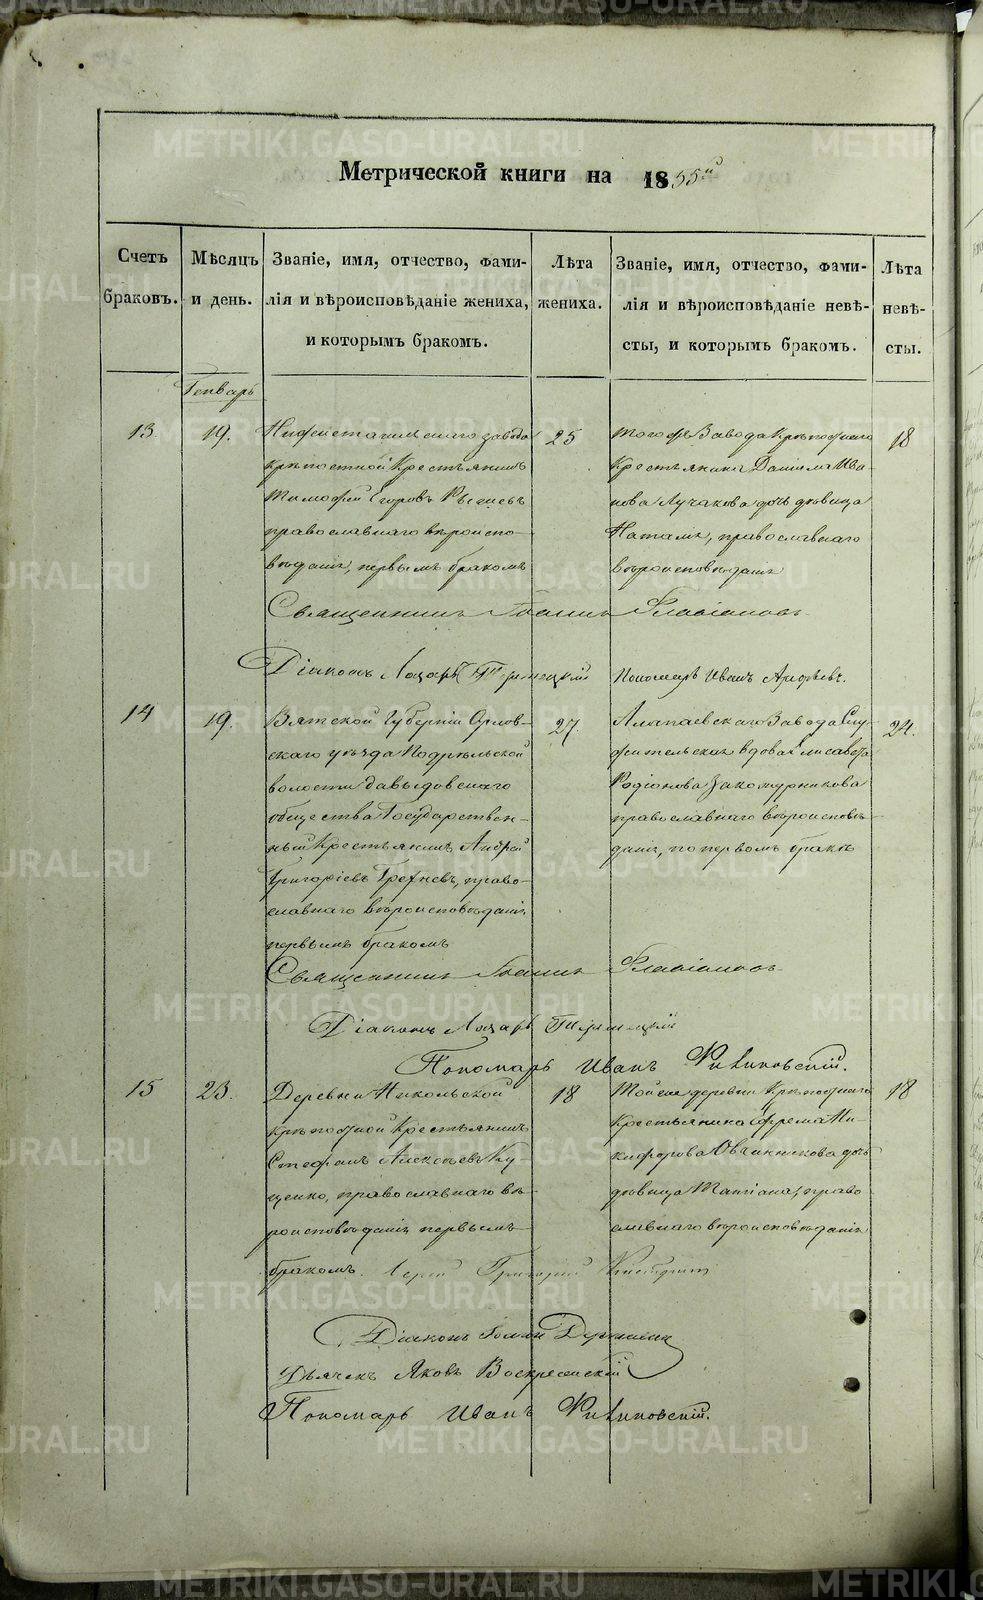 Метрической книги на 1855й
Счетъ браковъ.
Мѣсяцъ и день.
Званіе, имя, отчество, фами-
лія и вѣроисповѣданіе жениха,
и которымъ бракомъ.
Лѣта жениха.
Званіе, имя, отчество, фами-
лія и вѣроисповѣданіе невѣ-
сты, и которымъ бракомъ.
Лѣта невѣ-
сты.
Генварь
13.
19.
Нижнетагильскаго завода
крѣпостной Крестьянинъ
Тимофей Егоровъ
православнаго вѣроиспо-
вѣданія, первымъ бракомъ
25
тогожъ Завода Крѣпостнаго
Крестьянина Даніила Ива-
нова Лучакова дочь дѣвица
Наталія, православнаго
вѣроисповѣданія
18
Священникъ Іоаннъ Флавіановъ
Діаконъ Лазарь
Пономарь Иванъ Арефьевъ.
14
19.
Вятской Губерніи Орлов-
скаго уѣзда Подрѣльской
волости Давыдовскаго
общества Государствен-
ный Крестьянинъ Андрей
Григорьевъ Гребневъ, право-
славнаго вѣроисповѣданія
первымъ бракомъ
27.
Алапаевскаго Завода Слу-
жительская вдова Елисавета
Родіонова Закожурникова
православнаго вѣроисповѣ-
данія, по первомъ бракѣ
24.
Священникъ Іоаннъ Флавіановъ
Діаконъ Лазарь
Пономарь Иванъ
15
23.
Деревни Никольской
крѣпостной Крестьянинъ
Стефанъ Алексѣевъ Ку-
ценко, православнаго вѣ-
роисповѣданія первымъ
бракомъ.
18
Тойже деревни Крѣпостнаго
Крестьянина Ефрема Ни-
кифорова Овчинникова дочь
дѣвица Татіана, право-
славнаго вѣроисповѣданія
18
Іерей Григорій
Діаконъ Іоаннъ
Дьячекъ Яковъ Воскресенскій
Пономарь Иванъ
METRIKI.GASO-URAL.RU